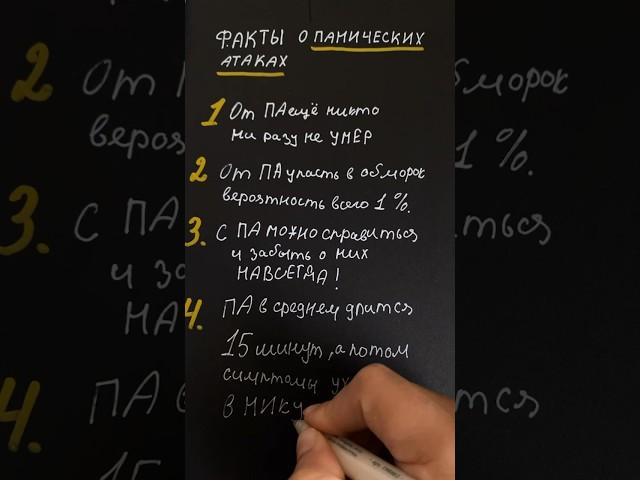 ФАКТЫ О ПАНИЧЕСКИХ
АТАКАХ
1 От ПА ещё никто
ни разу не УМЕР
2 От ПА упасть в обморок
вероятность всего 1 %.
3. С ПА можно справиться
и забыть о них
НАВСЕГДА!
4. ПА в среднем длится
15 минут, а потом
симптомы ух
в НИКУ